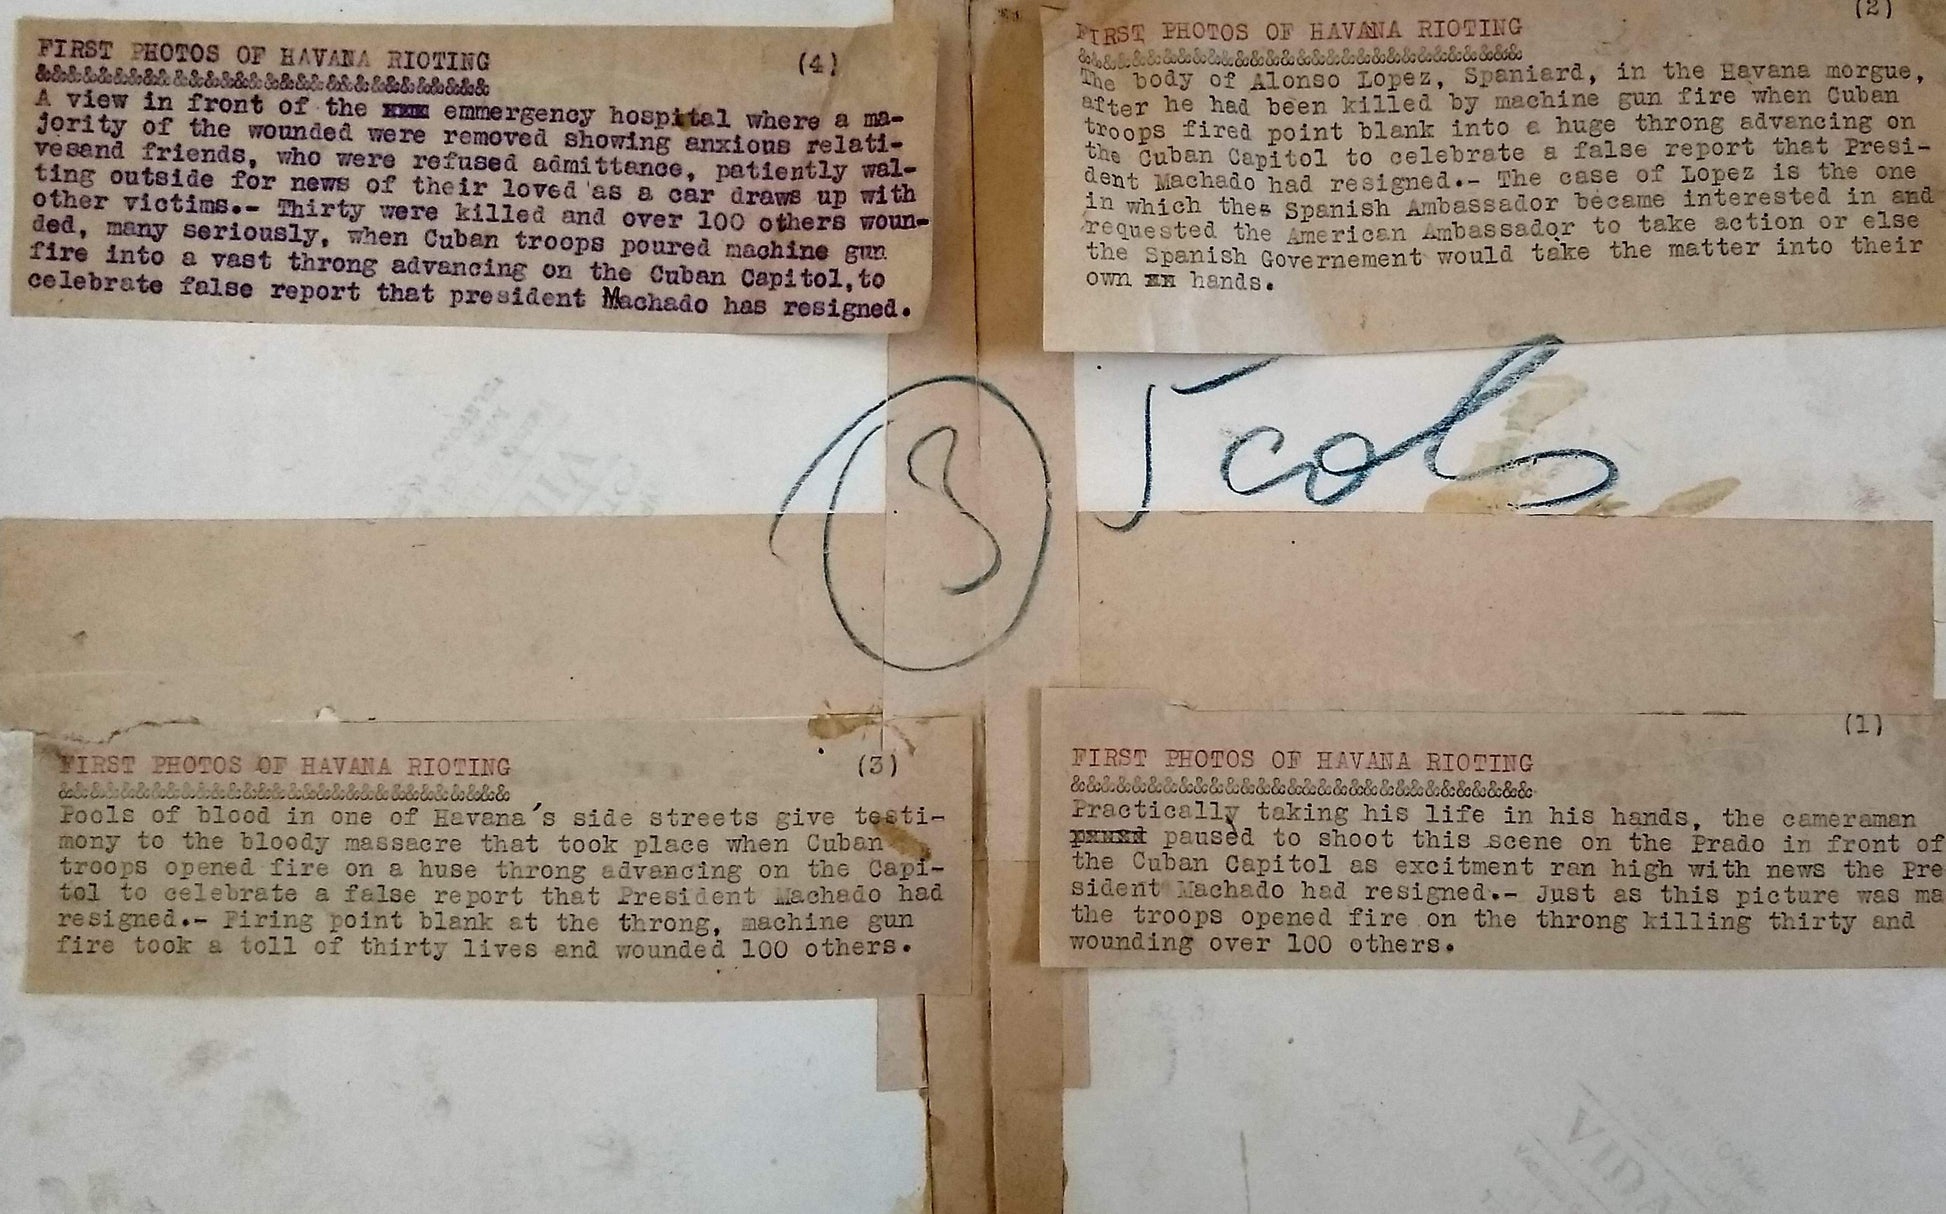 FIRST PHOTOS OF HAVANA RIOTING (4)
&&&&&&&&&&&&&&&&&&&&&&&&&&&&&&
A view in front of the xxxx emmergency hospital where a ma-
jority of the wounded were removed showing anxious relati-
vesand friends, who were refused admittance, patiently wai-
ting outside for news of their loved as a car draws up with
other victims.- Thirty were killed and over 100 others woun-
ded, many seriously, when Cuban troops poured machine gun
fire into a vast throng advancing on the Cuban Capitol,to
celebrate false report that president Machado has resigned.
(2)
FIRST PHOTOS OF HAVANA RIOTING
&&&&&&&&&&&&&&&&&&&&&&&&&&&&&&
The body of Alonso Lopez, Spaniard, in the Havana morgue,
after he had been killed by machine gun fire when Cuban
troops fired point blank into a huge throng advancing on
the Cuban Capitol to celebrate a false report that Presi-
dent Machado had resigned.- The case of Lopez is the one
in which thes Spanish Ambassador became interested in and
requested the American Ambassador to take action or else
the Spanish Governement would take the matter into their
own xx hands.
5 cols
FIRST PHOTOS OF HAVANA RIOTING (3)
&&&&&&&&&&&&&&&&&&&&&&&&&&&&&&
Pools of blood in one of Havana's side streets give testi-
mony to the bloody massacre that took place when Cuban
troops opened fire on a huse throng advancing on the Capi-
tol to celebrate a false report that President Machado had
resigned.- Firing point blank at the throng, machine gun
fire took a toll of thirty lives and wounded 100 others.
(1)
FIRST PHOTOS OF HAVANA RIOTING
&&&&&&&&&&&&&&&&&&&&&&&&&&&&&&
Practically taking his life in his hands, the cameraman
paused to shoot this scene on the Prado in front of
the Cuban Capitol as excitment ran high with news the Pre
sident Machado had resigned.- Just as this picture was ma
the troops opened fire on the throng killing thirty and
wounding over 100 others.
VIDA